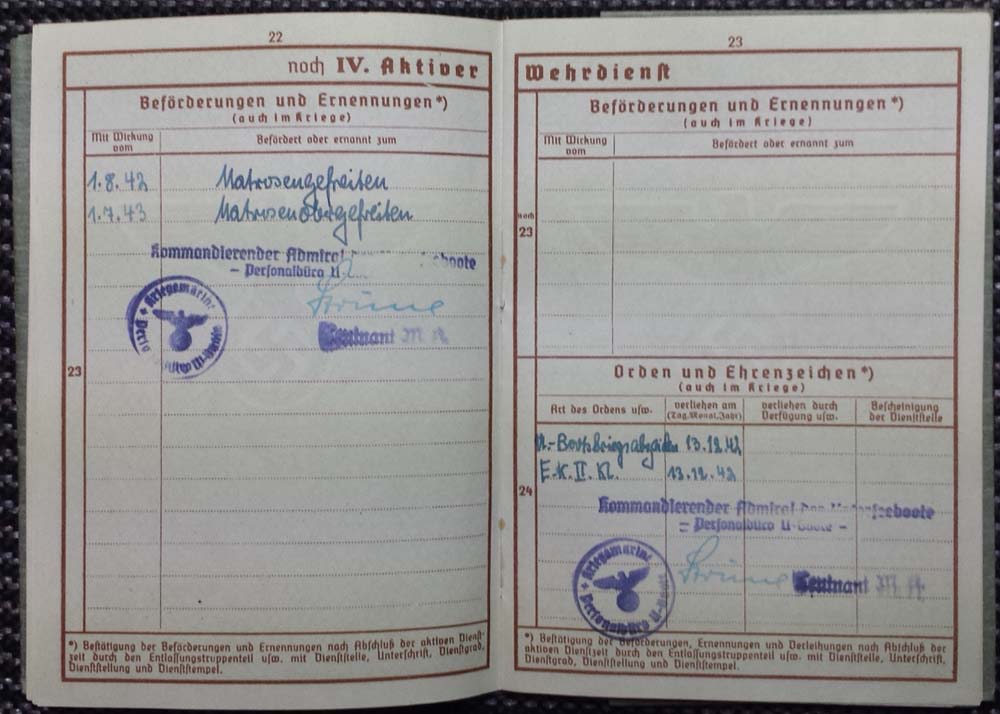 22
noch IV. Aktiver
Beförderungen und Ernennungen*)
(auch im Kriege)
Mit Wirkung vom
Befördert oder ernannt zum
1.8.42 Matrosengefreiten
1.7.43 Matrosenobergefreiten
Kommandierender Admiral eboote
– Personalbüro U
Kriegsmarine
Leutnant M.A.
23
*) Bestätigung der Beförderungen und Ernennungen nach Abschluß der aktiven Dienst-
zeit durch den Entlassungstruppenteil usw. mit Dienststelle, Unterschrift, Dienstgrad,
Dienststellung und Dienststempel.
23
Wehrdienst
Beförderungen und Ernennungen*)
(auch im Kriege)
Mit Wirkung vom
Befördert oder ernannt zum
noch
23
Orden und Ehrenzeichen*)
(auch im Kriege)
Art des Ordens usw.
verliehen am
(Tag, Monat, Jahr)
verliehen durch
Verfügung usw.
Bescheinigung
der Dienststelle
U.-Bootskriegsabzeichen 13.12.42
E.K. II. Kl. 13.12.42
24
Kommandierender Admiral der Unterseeboote
– Personalbüro U-Boote –
Kriegsmarine
Personalbüro U-Boote
Leutnant M.A.
*) Bestätigung der Beförderungen, Ernennungen und Verleihungen nach Abschluß der
aktiven Dienstzeit durch den Entlassungstruppenteil usw. mit Dienststelle, Unterschrift,
Dienstgrad, Dienststellung und Dienststempel.